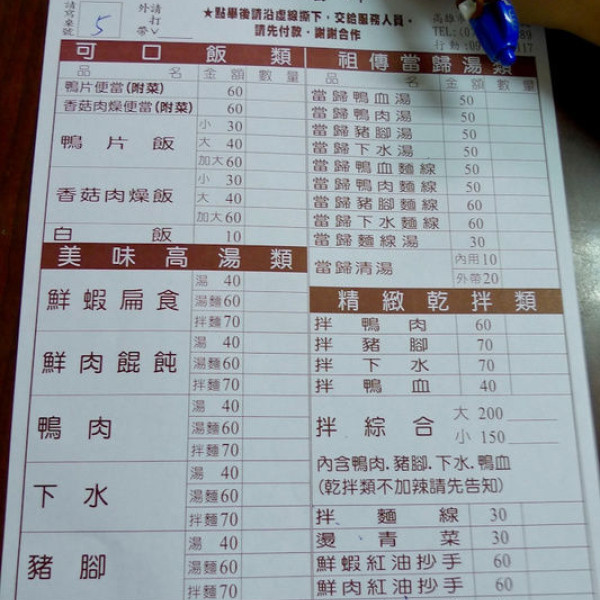 請寫桌號
5
外請打帶V
★點單後請沿虛線撕下，交給服務人員。
請先付款，謝謝合作
高雄
TEL:(0
89
行動:09
117
可口飯類
品名 金額 數量
鴨片便當(附菜) 60
香菇肉燥便當(附菜) 60
鴨片飯
小 30
大 40
加大60
香菇肉燥飯
小 30
大 40
加大60
白飯 10
美味高湯類
鮮蝦扁食
湯 40
湯麵60
拌麵70
鮮肉餛飩
湯 40
湯麵60
拌麵70
鴨肉
湯 40
湯麵60
拌麵70
下水
湯 40
湯麵60
拌麵70
豬腳
湯 40
湯麵60
拌麵70
祖傳當歸湯類
品名 金額 數量
當歸鴨血湯 50
當歸鴨肉湯 50
當歸豬腳湯 50
當歸下水湯 50
當歸鴨血麵線 50
當歸鴨肉麵線 50
當歸豬腳麵線 60
當歸下水麵線 60
當歸麵線湯 30
當歸清湯
內用10
外帶20
精緻乾拌類
拌鴨肉 60
拌豬腳 70
拌下水 70
拌鴨血 40
拌綜合
大 200
小 150
內含鴨肉.豬腳.下水.鴨血
(乾拌類不加辣請先告知)
拌麵線 30
燙青菜 30
鮮蝦紅油抄手 60
鮮肉紅油抄手 60